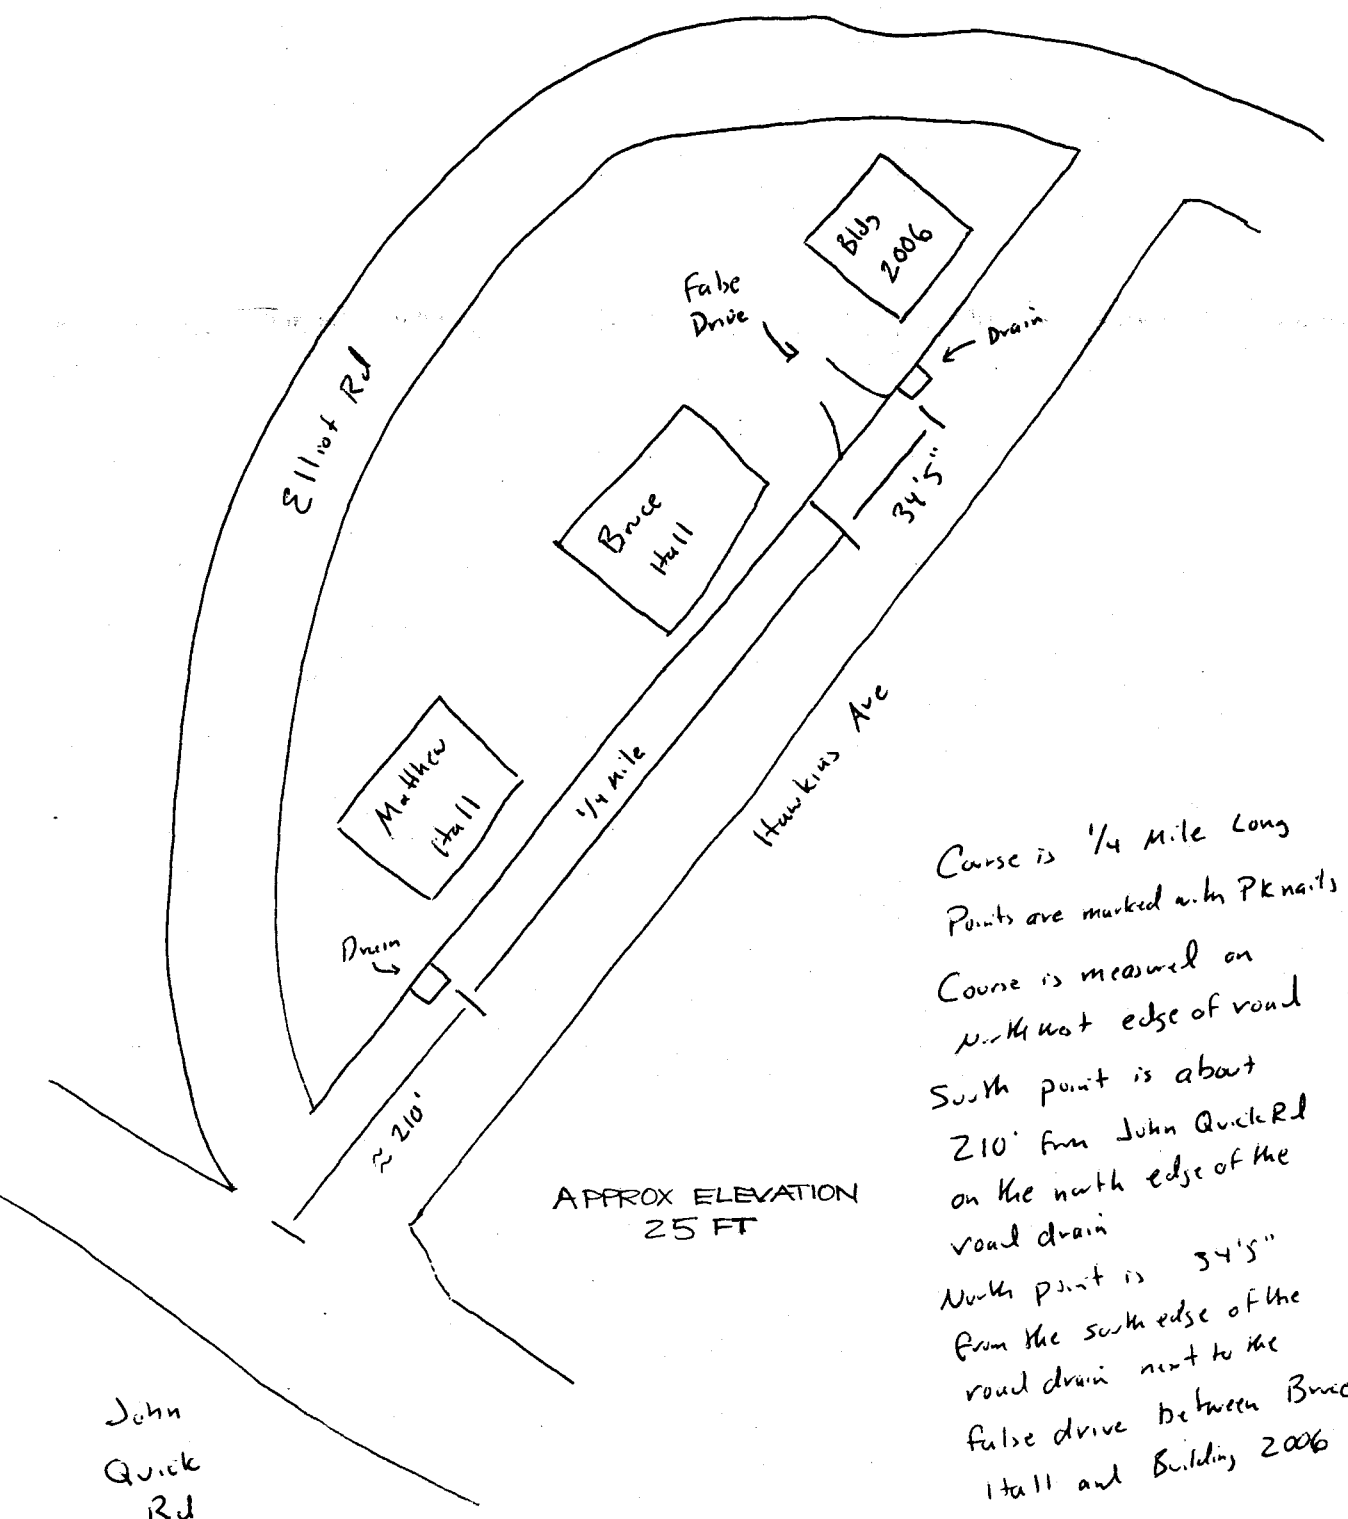 Bldg
2006
False
Drive
Drain
Elliot Rd
34'5"
Bruce
Hall
Hawkins Ave
1/4 Mile
Matthew
Hall
Drain
≈ 210'
APPROX ELEVATION
25 FT
John
Quick
Rd
Course is 1/4 Mile Long
Points are marked with PK nails
Course is measured on
northwest edge of road
South point is about
210' from John Quick Rd
on the north edge of the
road drain
North point is 34'5"
from the south edge of the
road drain next to the
false drive between Bruce
Hall and Building 2006